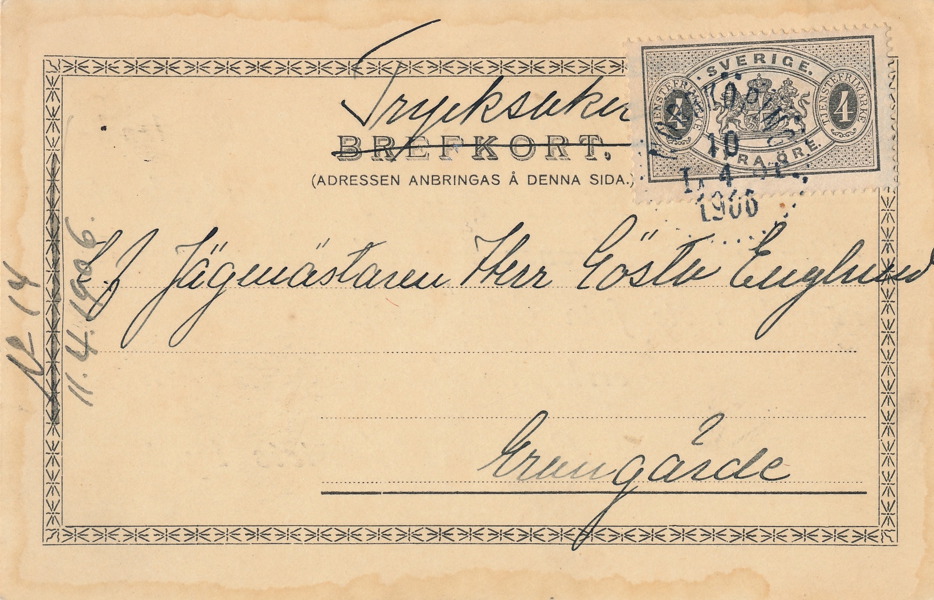 Trycksaker
BREFKORT.
(ADRESSEN ANBRINGAS Å DENNA SIDA.)
SVERIGE.
TJENSTEFRIMARKE
4
4
TJENSTEFRIMARKE
FYRA ÖRE.
10
4
1906
Jägmästaren Herr Gösta Englund
Grangärde
No 14
11.4.1906.